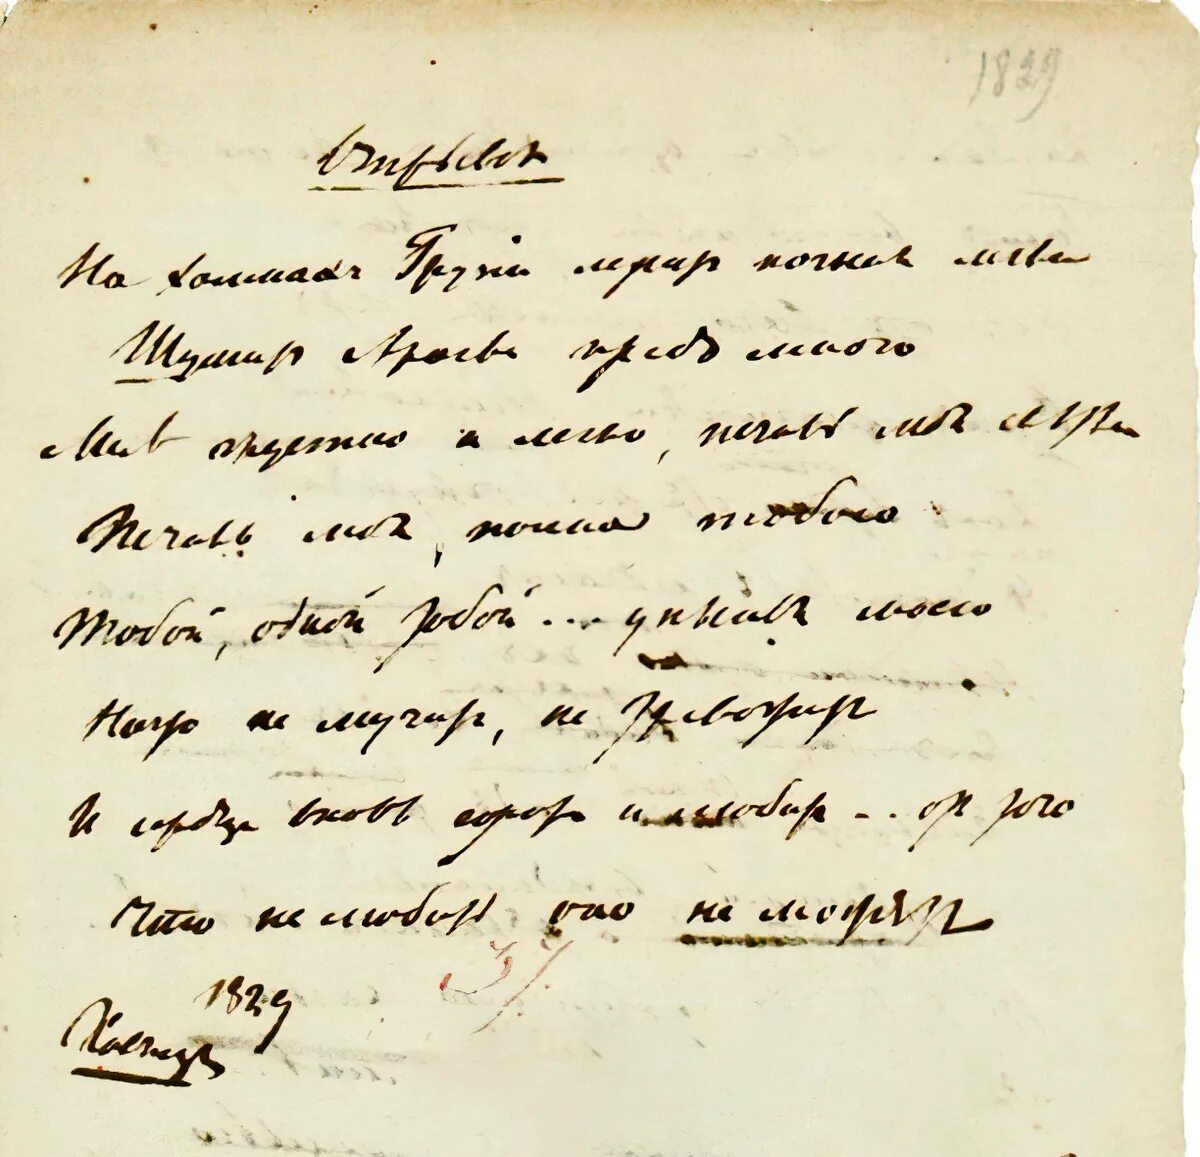 1829
Отрывок
На холмахъ Грузіи лежит ночная мгла
Шумит Арагва предъ мною
Мнѣ грустно и легко, печаль моя свѣтла
Печаль моя, полна тобою
Тобой, одной тобой... унынья моего
Ничто не мучит, не тревожит
И сердце вновь горит и любит... от того
Что не любить оно не можетъ
37.
1829
Кавказъ